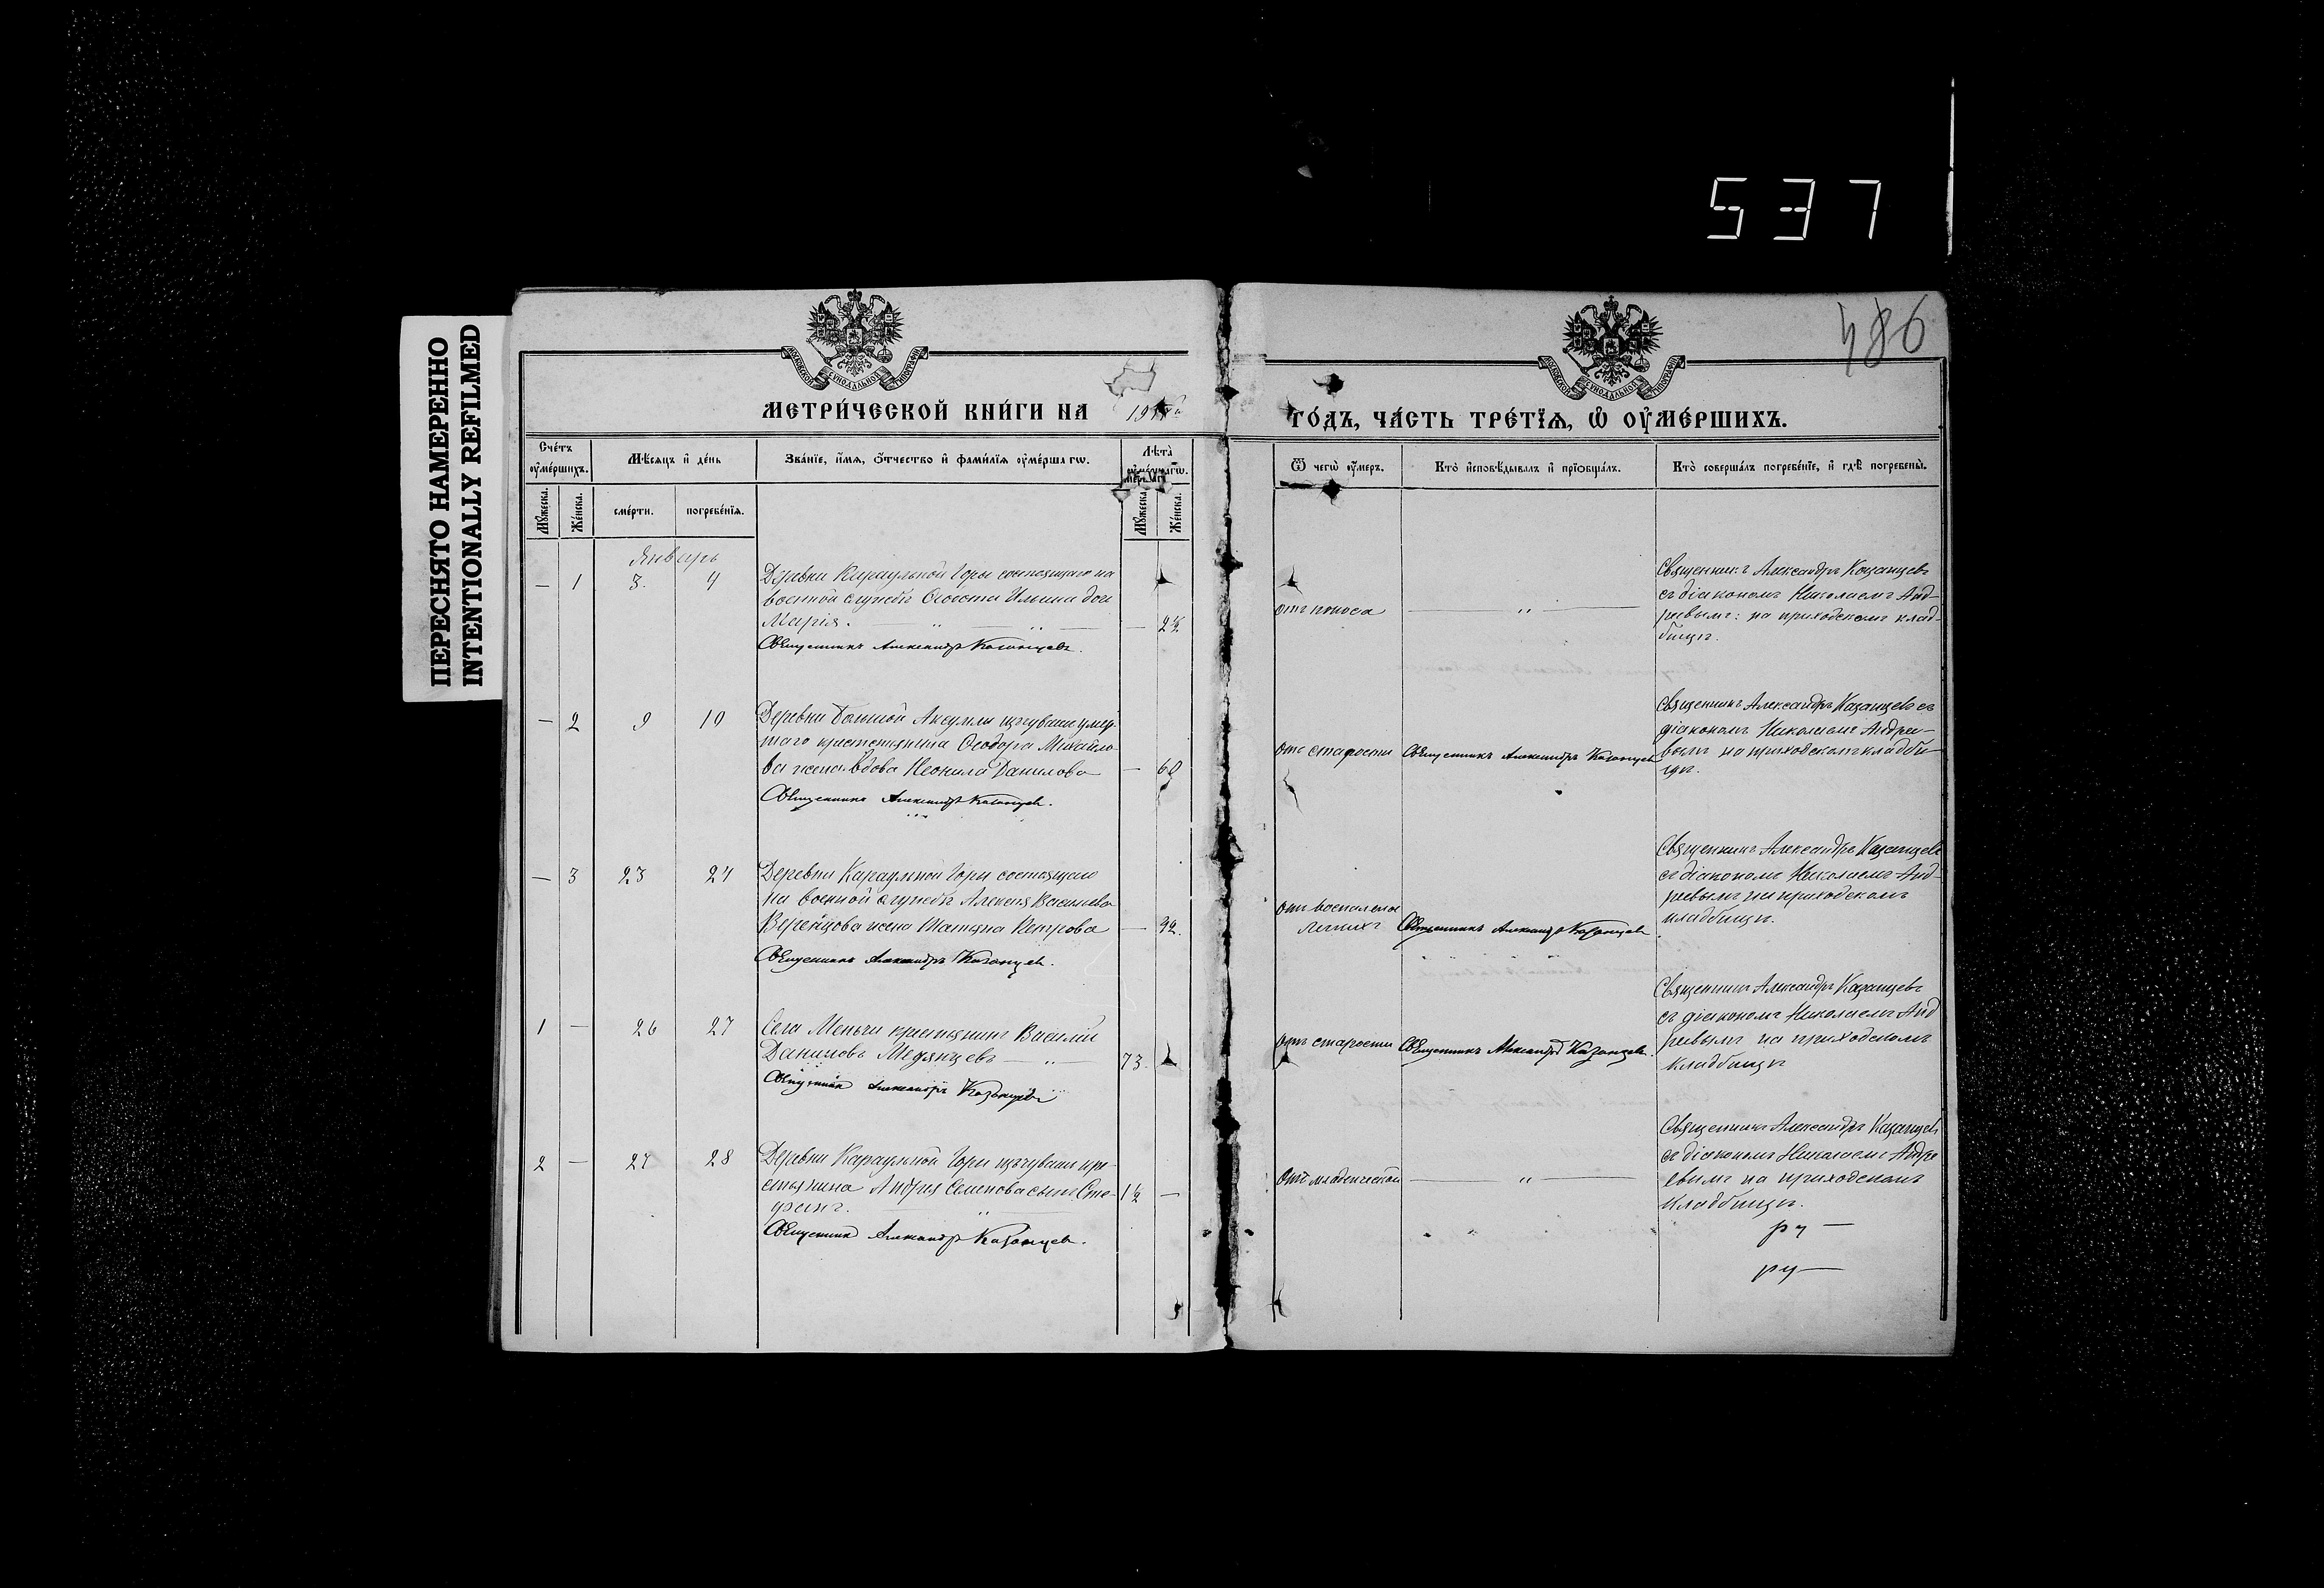 537
486
ПЕРЕСНЯТО НАМЕРЕННО
INTENTIONALLY REFILMED
МОСКОВСКОЙ СѴНОДАЛЬНОЙ ТИПОГРАФІИ
МОСКОВСКОЙ СѴНОДАЛЬНОЙ ТИПОГРАФІИ
МЕТРИ́ЧЕСКОЙ КНИ́ГИ НА
ГО́ДЪ, ЧА́СТЬ ТРЕ́ТЇѦ, Ѡ҆ ОУ҆МЕ́РШИХЪ.
Сче́тъ оу҆ме́ршихъ.
Мꙋ́жеска.
Же́нска.
Мѣ́сѧцъ и҆ де́нь
сме́рти.
погребе́нїѧ.
Зва́нїе, и҆́мѧ, ѻ҆́тчество и҆ фами́лїѧ оу҆ме́ршагѡ.
Лѣ́та̀
Мꙋ́жеска.
Же́нска.
Ѿ чегѡ̀ оу҆́меръ.
Кто̀ и҆сповѣ́дывалъ и҆ прїѻбща́лъ.
Кто̀ соверша́лъ погребе́нїе, и҆ гдѣ̀ погребены̀.
Январь
— 1 3. 4 Деревни Караульной Горы состоящаго на
военной службѣ Ильина дочь
Марія. — " — " —
Священникъ Александръ Казанцевъ.
отъ поноса — " —
Священникъ Александръ Казанцевъ
съ діакономъ Николаемъ Анд-
реевымъ: на приходскомъ клад-
бищѣ.
— 2 9 10 Деревни Большой Аксумлы умер-
шаго крестьянина Ѳеодора Михайло-
ва жена вдова Неонила Данилова — 60
Священникъ Александръ Казанцевъ.
отъ старости Священникъ Александръ Казанцевъ
Священникъ Александръ Казанцевъ съ
діакономъ Николаемъ Андрее-
вымъ на приходскомъ кладби-
щѣ.
— 3 23 24 Деревни Караульной Горы состоящаго
на военной службѣ Алексѣя Васильева
жена Татьяна Петрова — 32.
Священникъ Александръ Казанцевъ.
отъ воспаленія
легкихъ Священникъ Александръ Казанцевъ
Священникъ Александръ Казанцевъ
съ діакономъ Николаемъ Анд-
реевымъ на приходскомъ
кладбищѣ.
1 — 26 27 Села Меньчи крестьянинъ Василій
Даниловъ Медянцевъ — " 73. —
Священникъ Александръ Казанцевъ
отъ старости Священникъ Александръ Казанцевъ.
Священникъ Александръ Казанцевъ
съ діакономъ Николаемъ Анд
реевымъ на приходскомъ
кладбищѣ
2 — 27 28 Деревни Караульной Горы кре-
стьянина Андрея Семенова сынъ Сте-
фанъ. — " — 1½ —
Священникъ Александръ Казанцевъ.
отъ младенческой — " —
Священникъ Александръ Казанцевъ
съ діакономъ Николаемъ Андре
евымъ на приходскомъ
кладбищѣ.